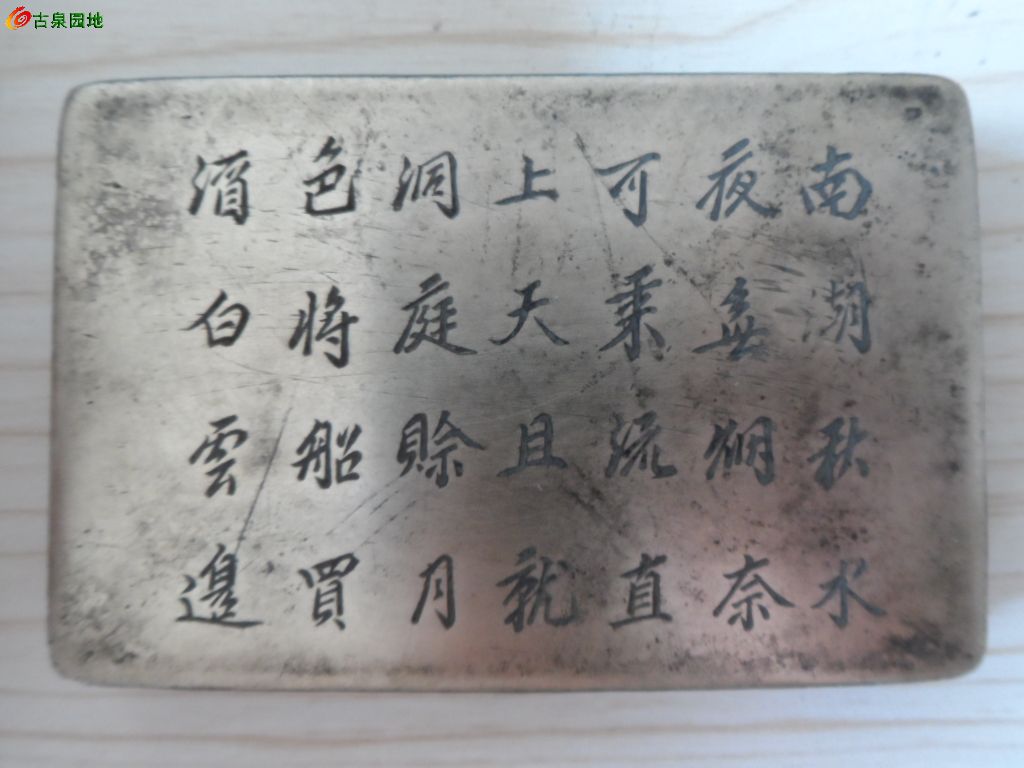 古泉园地
南湖秋水
夜無烟奈
可乘流直
上天且就
洞庭賒月
色將船買
酒白雲邊